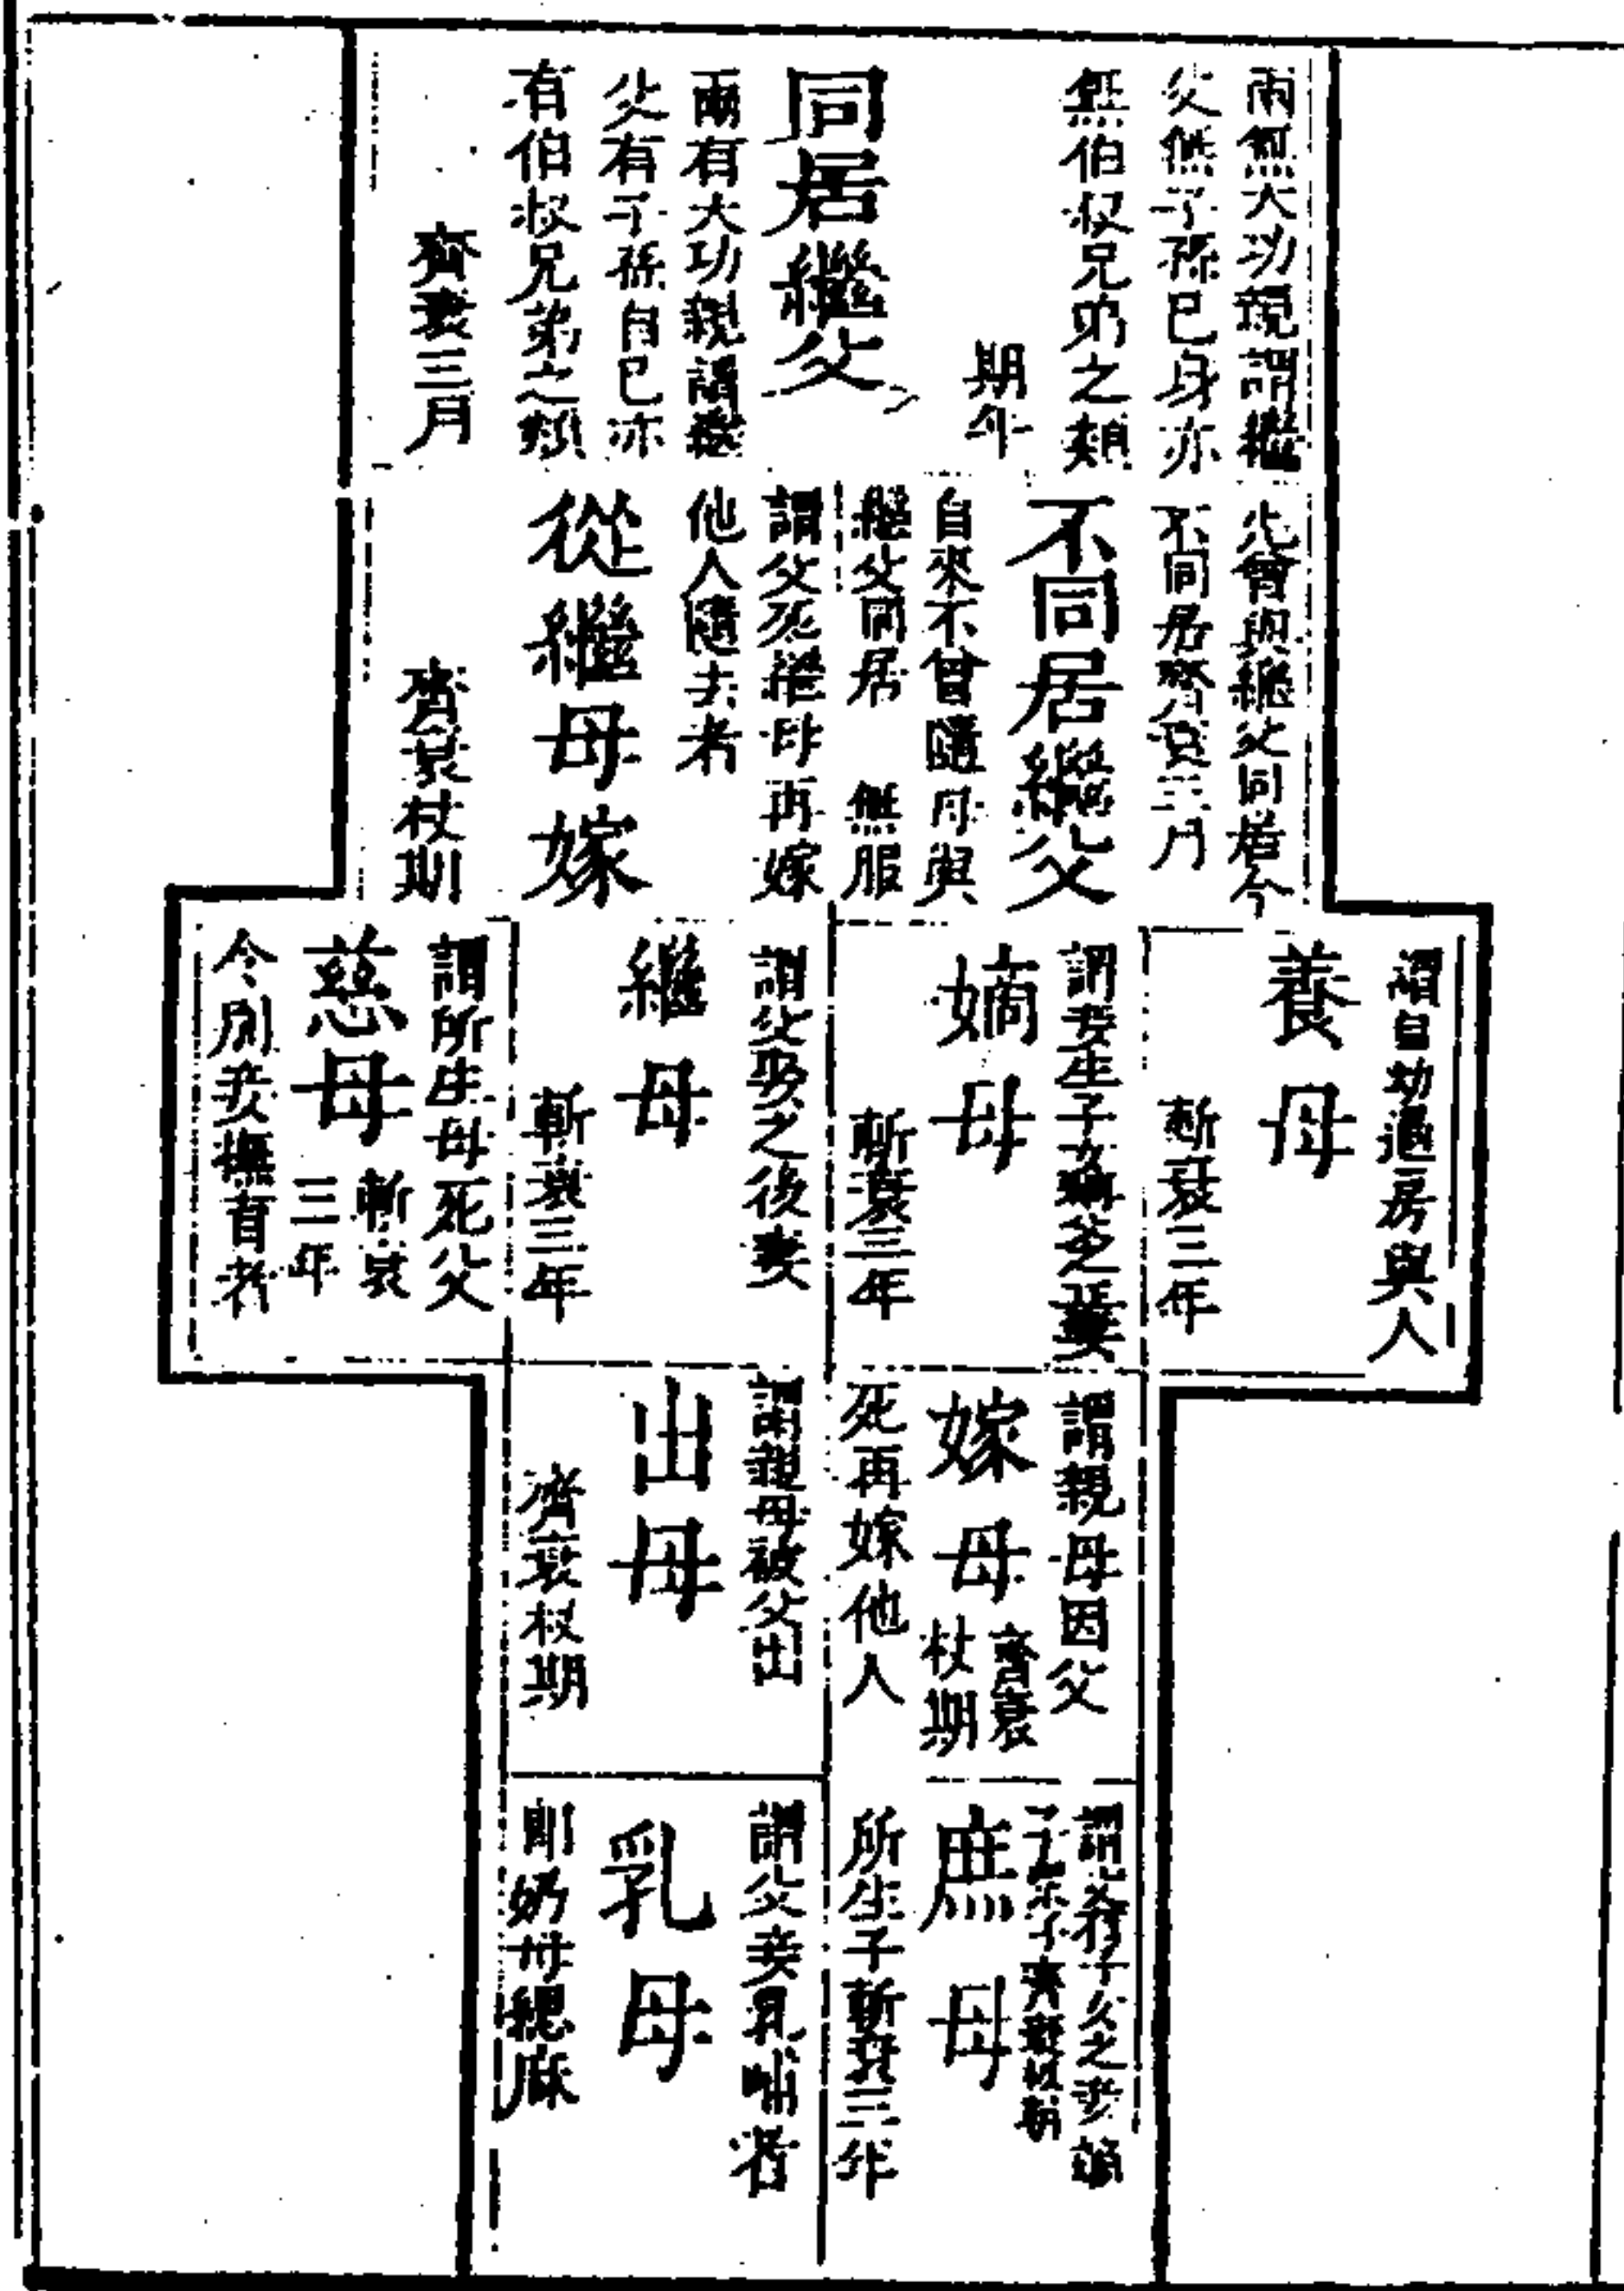 兩無大功親謂繼
父無子孫己身亦
無伯叔兄弟之類
期年
同居繼父
兩有大功親謂繼
父有子孫自己亦
有伯叔兄弟之類
齊衰三月
先曾與繼父同居今
不同居齊衰三月
不同居繼父
自來不曾隨母與
繼父同居 無服
謂父死繼母再嫁
他人隨去者
從繼母嫁
齊衰杖期
謂自幼過房與人
養母
斬衰三年
謂妾生子女稱父之正妻
嫡母
斬衰三年
謂父娶之後妻
繼母
斬衰三年
謂所生母死父
慈母 斬衰
三年
令別妾撫育者
謂親母因父
嫁母 齊衰
杖期
死再嫁他人
謂親母被父出
出母
齊衰杖期
謂父有子女之妾嫡
子眾子齊衰杖期
庶母
所生子斬衰三年
謂父妾乳哺者
乳母
即奶母緦麻